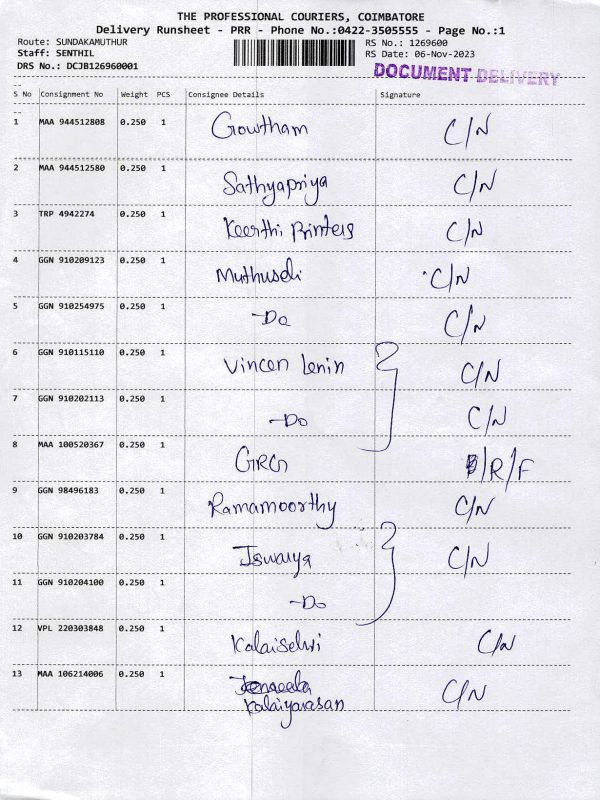 THE PROFESSIONAL COURIERS, COIMBATORE
Delivery Runsheet - PRR - Phone No.:0422-3505555 - Page No.:1
Route: SUNDAKAMUTHUR RS No.: 1269600
Staff: SENTHIL RS Date: 06-Nov-2023
DRS No.: DCJB126960001 DOCUMENT DELIVERY
S No Consignment No Weight PCS Consignee Details Signature
1 MAA 944512808 0.250 1 Gowtham C/N
2 MAA 944512580 0.250 1 Sathyapriya C/N
3 TRP 4942274 0.250 1 Keerthi Printers C/N
4 GGN 910209123 0.250 1 Muthuseli C/N
5 GGN 910254975 0.250 1 -Do C/N
6 GGN 910115110 0.250 1 Vincen Lenin C/N
7 GGN 910202113 0.250 1 -Do C/N
8 MAA 100520367 0.250 1 GRG /R/F
9 GGN 98496183 0.250 1 Ramamoorthy C/N
10 GGN 910203784 0.250 1 Iswarya C/N
11 GGN 910204100 0.250 1 -Do
12 VPL 220303848 0.250 1 Kalaiselvi C/N
13 MAA 106214006 0.250 1 C/N
Kalaiyarasan